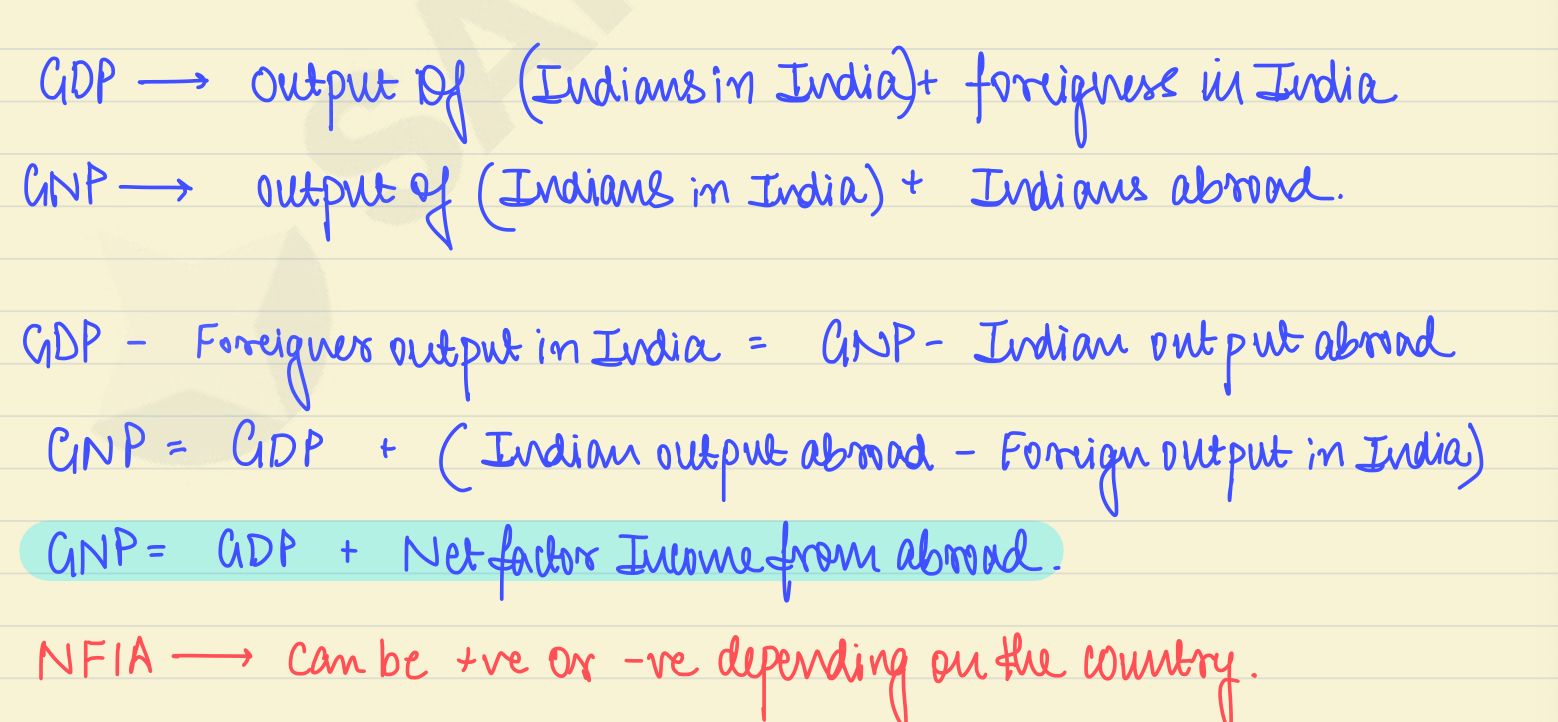 GDP → output of (Indians in India) + foreigness in India
GNP → output of (Indians in India) + Indians abroad.
GDP - Foreigner output in India = GNP - Indian output abroad
GNP = GDP + (Indian output abroad - Foreign output in India)
GNP = GDP + Net factor Income from abroad.
NFIA → can be +ve or -ve depending on the country.